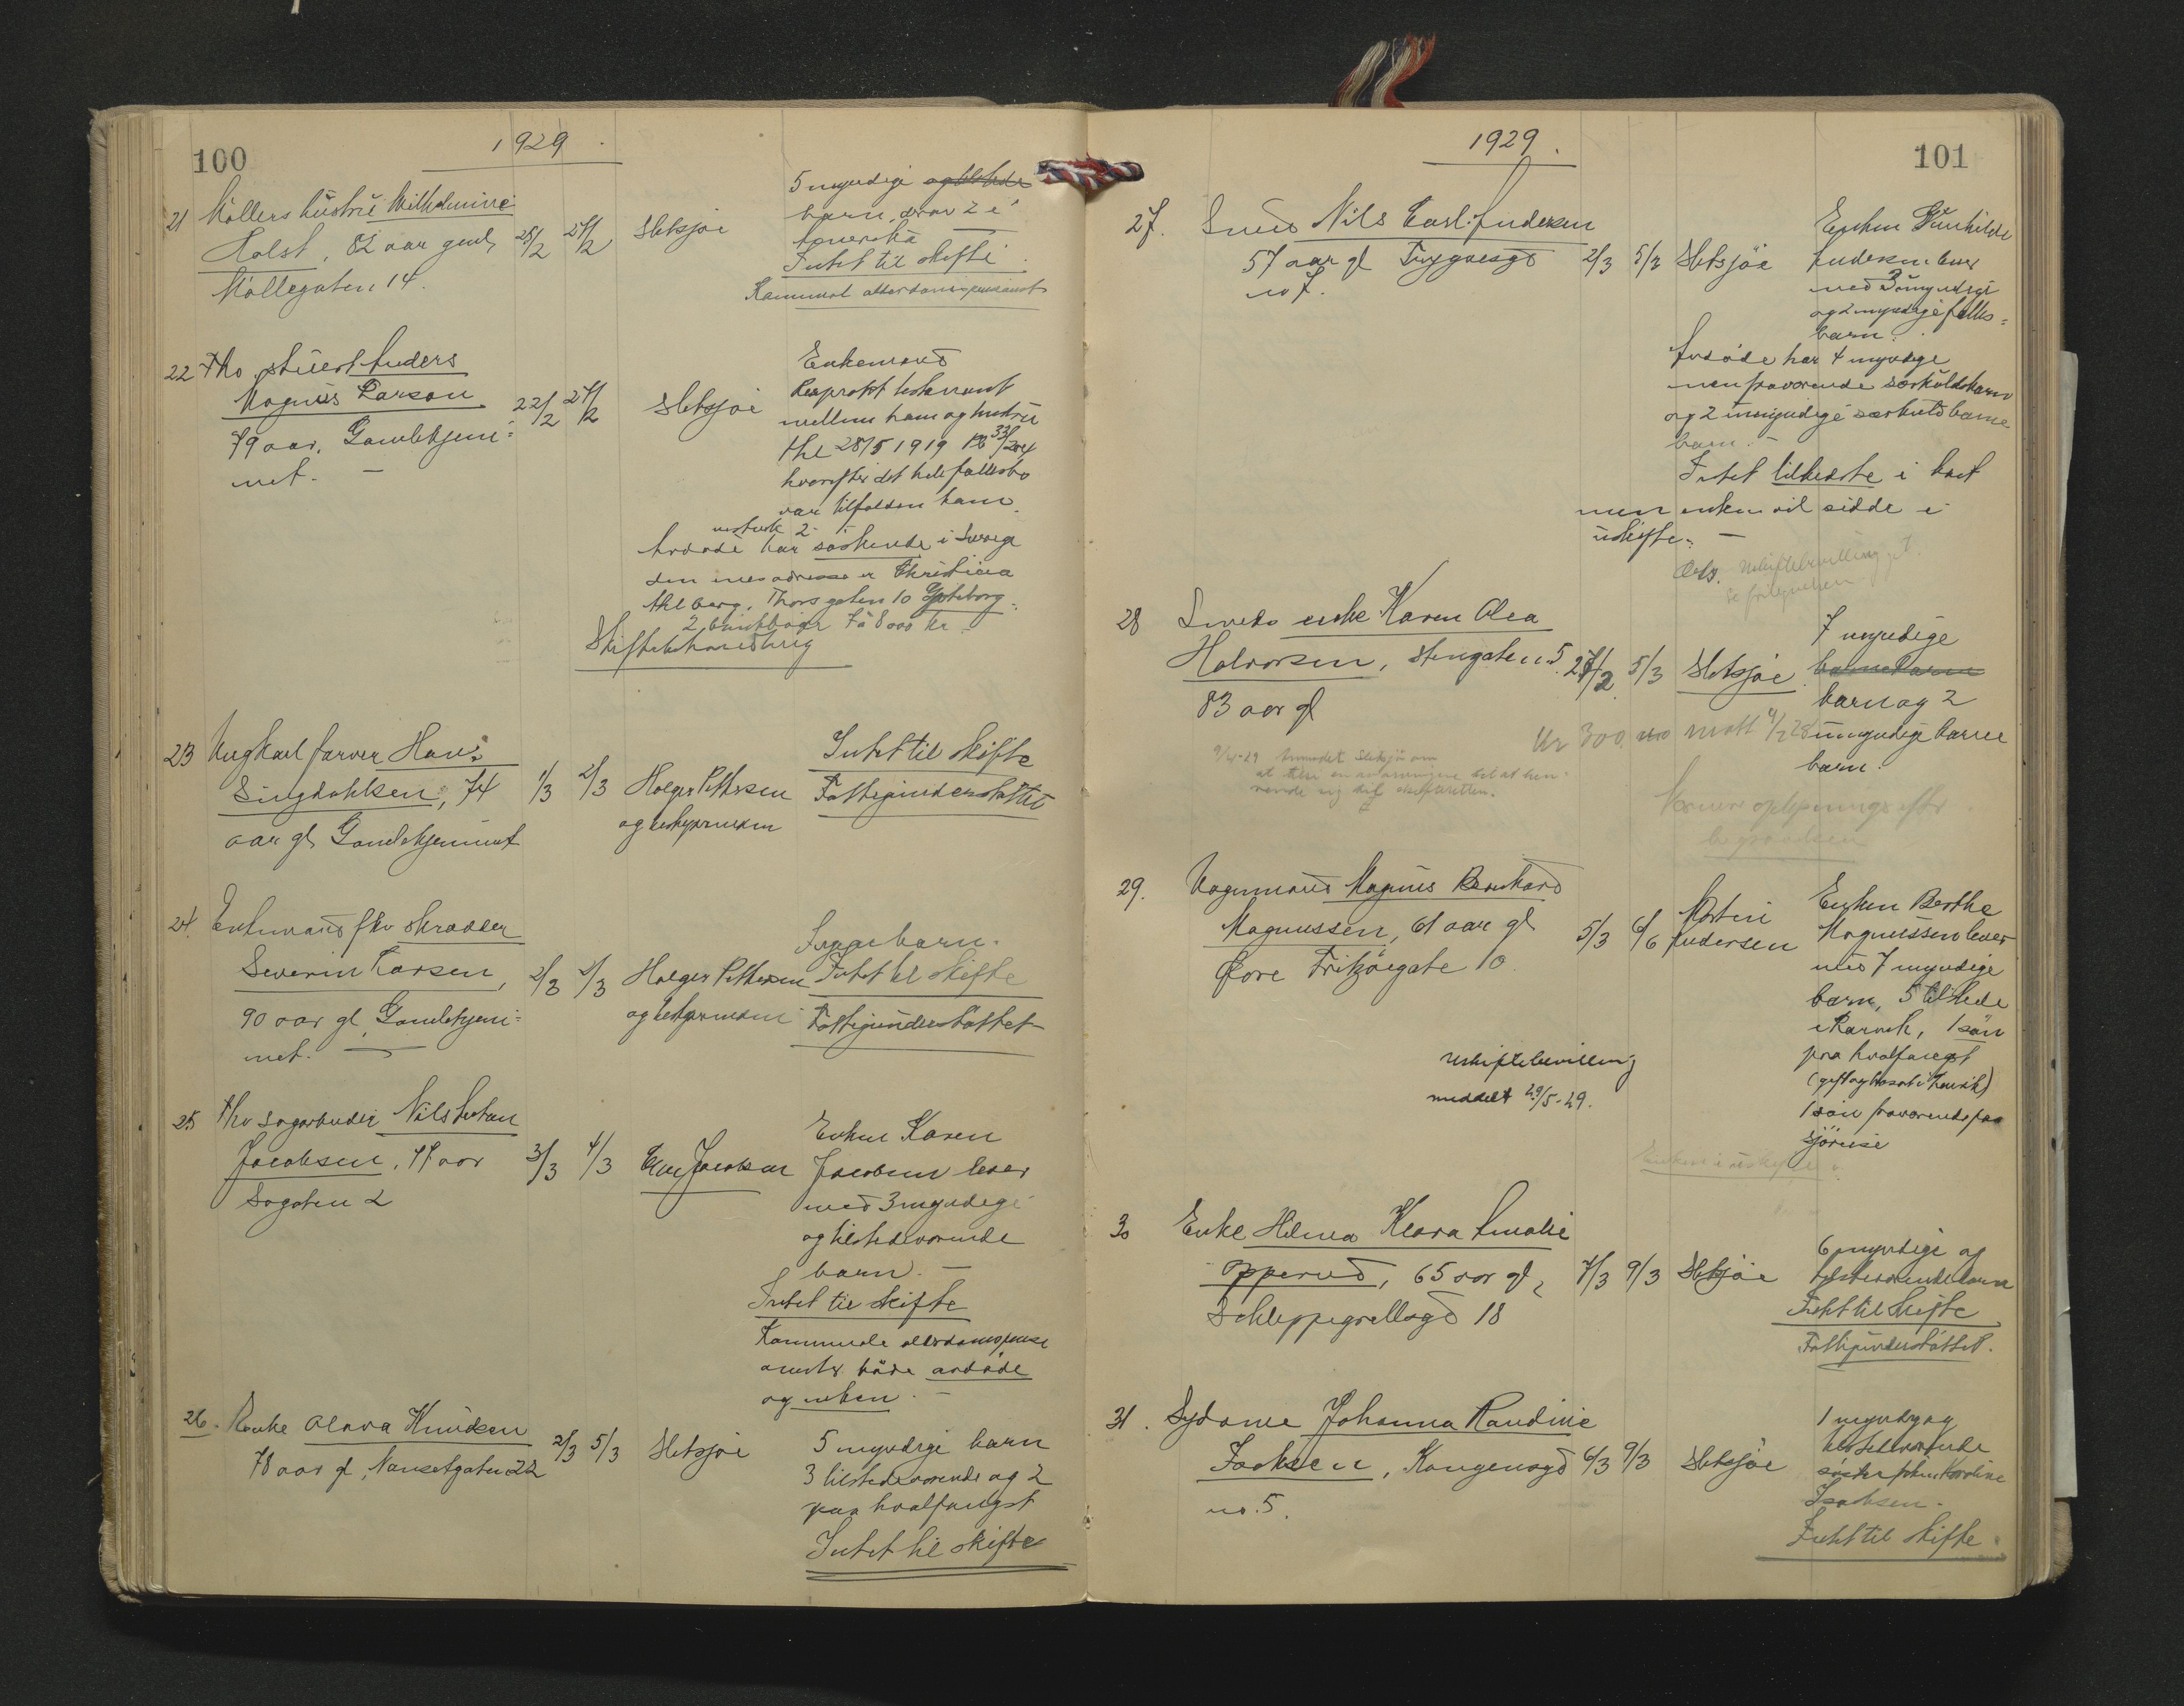 100
1929
21 Møllers hustru Wilhelmine
Holst, 82 aar gml, 25/2 27/2 Sletsjøe
Møllegaten 14.
5 myndige og tilstede
barn, derav 2 i
Amerika
Intet til skifte
Kommunal alderdomspensionist
22 Fhv. stuert Anders
Magnus Larson 22/2 27/2 Sletsjøe
79 aar, Gamlehjem=
met. —
Enkemand
mellem ham og hustru
28/5 1919
hvorefter det hele fællesbo
var tilfalden ham.
Avdøde har søskende i Sverge
den enes adresse er Christina
Ahlberg, Thorsgaten 10 Gøteborg.
2 bankbøger 7 à 8000 kr.
Skiftebehandling
23 Ungkarl farver Hans
74 1/3 2/3 Holger Pettersen
aar gl, Gamlehjemmet
og bestyrerinden
Intet til skifte
Fattigunderstøttet
24. Enkemand fhv skrædder
Severin Larsen, 2/3 2/3 Holger Pettersen
90 aar gl, Gamlehjem=
met. —
og bestyrerinden
Ingen barn.
Intet til skifte
Fattigunderstøttet
25 Fhv sagarbeider Nils Johan
Jacobsen, 77 aar 3/3 4/3 Jacobsen
Sagaten 2
Enken Karen
Jacobsen lever
med 3 myndige
og tilstedeværende
barn. —
Intet til skifte
Kommunale alderdomspensi
onister både avdøde
og enken. —
26. Enke Olava Knudsen
78 aar gl, Nansetgaten 22 2/3 5/3 Sletsjøe
5 myndige barn
3 tilstedeværende og 2
paa hvalfangst
Intet til skifte
1929.
101
27. Smed Nils Carl Andersen
57 aar gl Trygvesgd 2/3 5/3 Sletsjøe
no 7.
Enken Gunhilde
Andersen lever
med 3 umyndige
og 2 myndige fælles=
barn.
Avdøde har 4 myndige
men fraværende særkuldsbarn
og 2 umyndige særkulds barne
barn. —
Intet tilstede i boet
men enken vil sidde i
uskifte. —
Obs. Uskiftebevilling
28 Smeds enke Karen Olea
Halvorsen, Stengaten 5. 27/2 5/3 Sletsjøe
83 aar gl
7 myndige
barnebarn
barn og 2
umyndige barne
barn.
Kr 300
9/4-29 Anmodet Sletsjøe om
29. Vognmand Magnus Bernhard
Magnussen, 61 aar gl 5/3 6/6 Martin
Andersen
Øvre Fritzøegate 10
Enken Berthe
Magnussen lever
med 7 myndige
barn, 5 tilstede
i Larvik, 1 søn
paa hvalfangst
(gift og bosat i Larvik)
1 søn fraværende paa
sjøreise
Uskiftebevilling
meddelt 29/5-29.
30 Enke Helma Klara Amalie
Opperud, 65 aar gl, 7/3 9/3 Sletsjøe
Schleppegrellsgd 18
6 myndige og
tilstedeværende barn
Intet til skifte
Fattigunderstøttet.
31. Sydame Johanna Randine
Isaksen, Kongensgd 6/3 9/3 Sletsjøe
no. 5.
1 myndig og
tilstedeværende
søster frøken Karoline
Isaksen.
Intet til skifte.